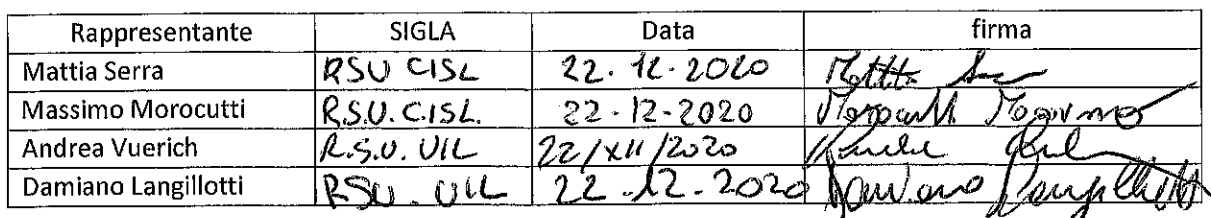 Rappresentante SIGLA Data firma
Mattia Serra RSU CISL 22.12.2020 Mattia Serra
Massimo Morocutti R.S.U. C.I.S.L. 22-12-2020 Morocutti Massimo
Andrea Vuerich R.S.U. UIL 22/XII/2020
Damiano Langillotti RSU. UIL 22.12-2020 Damiano Langillotti